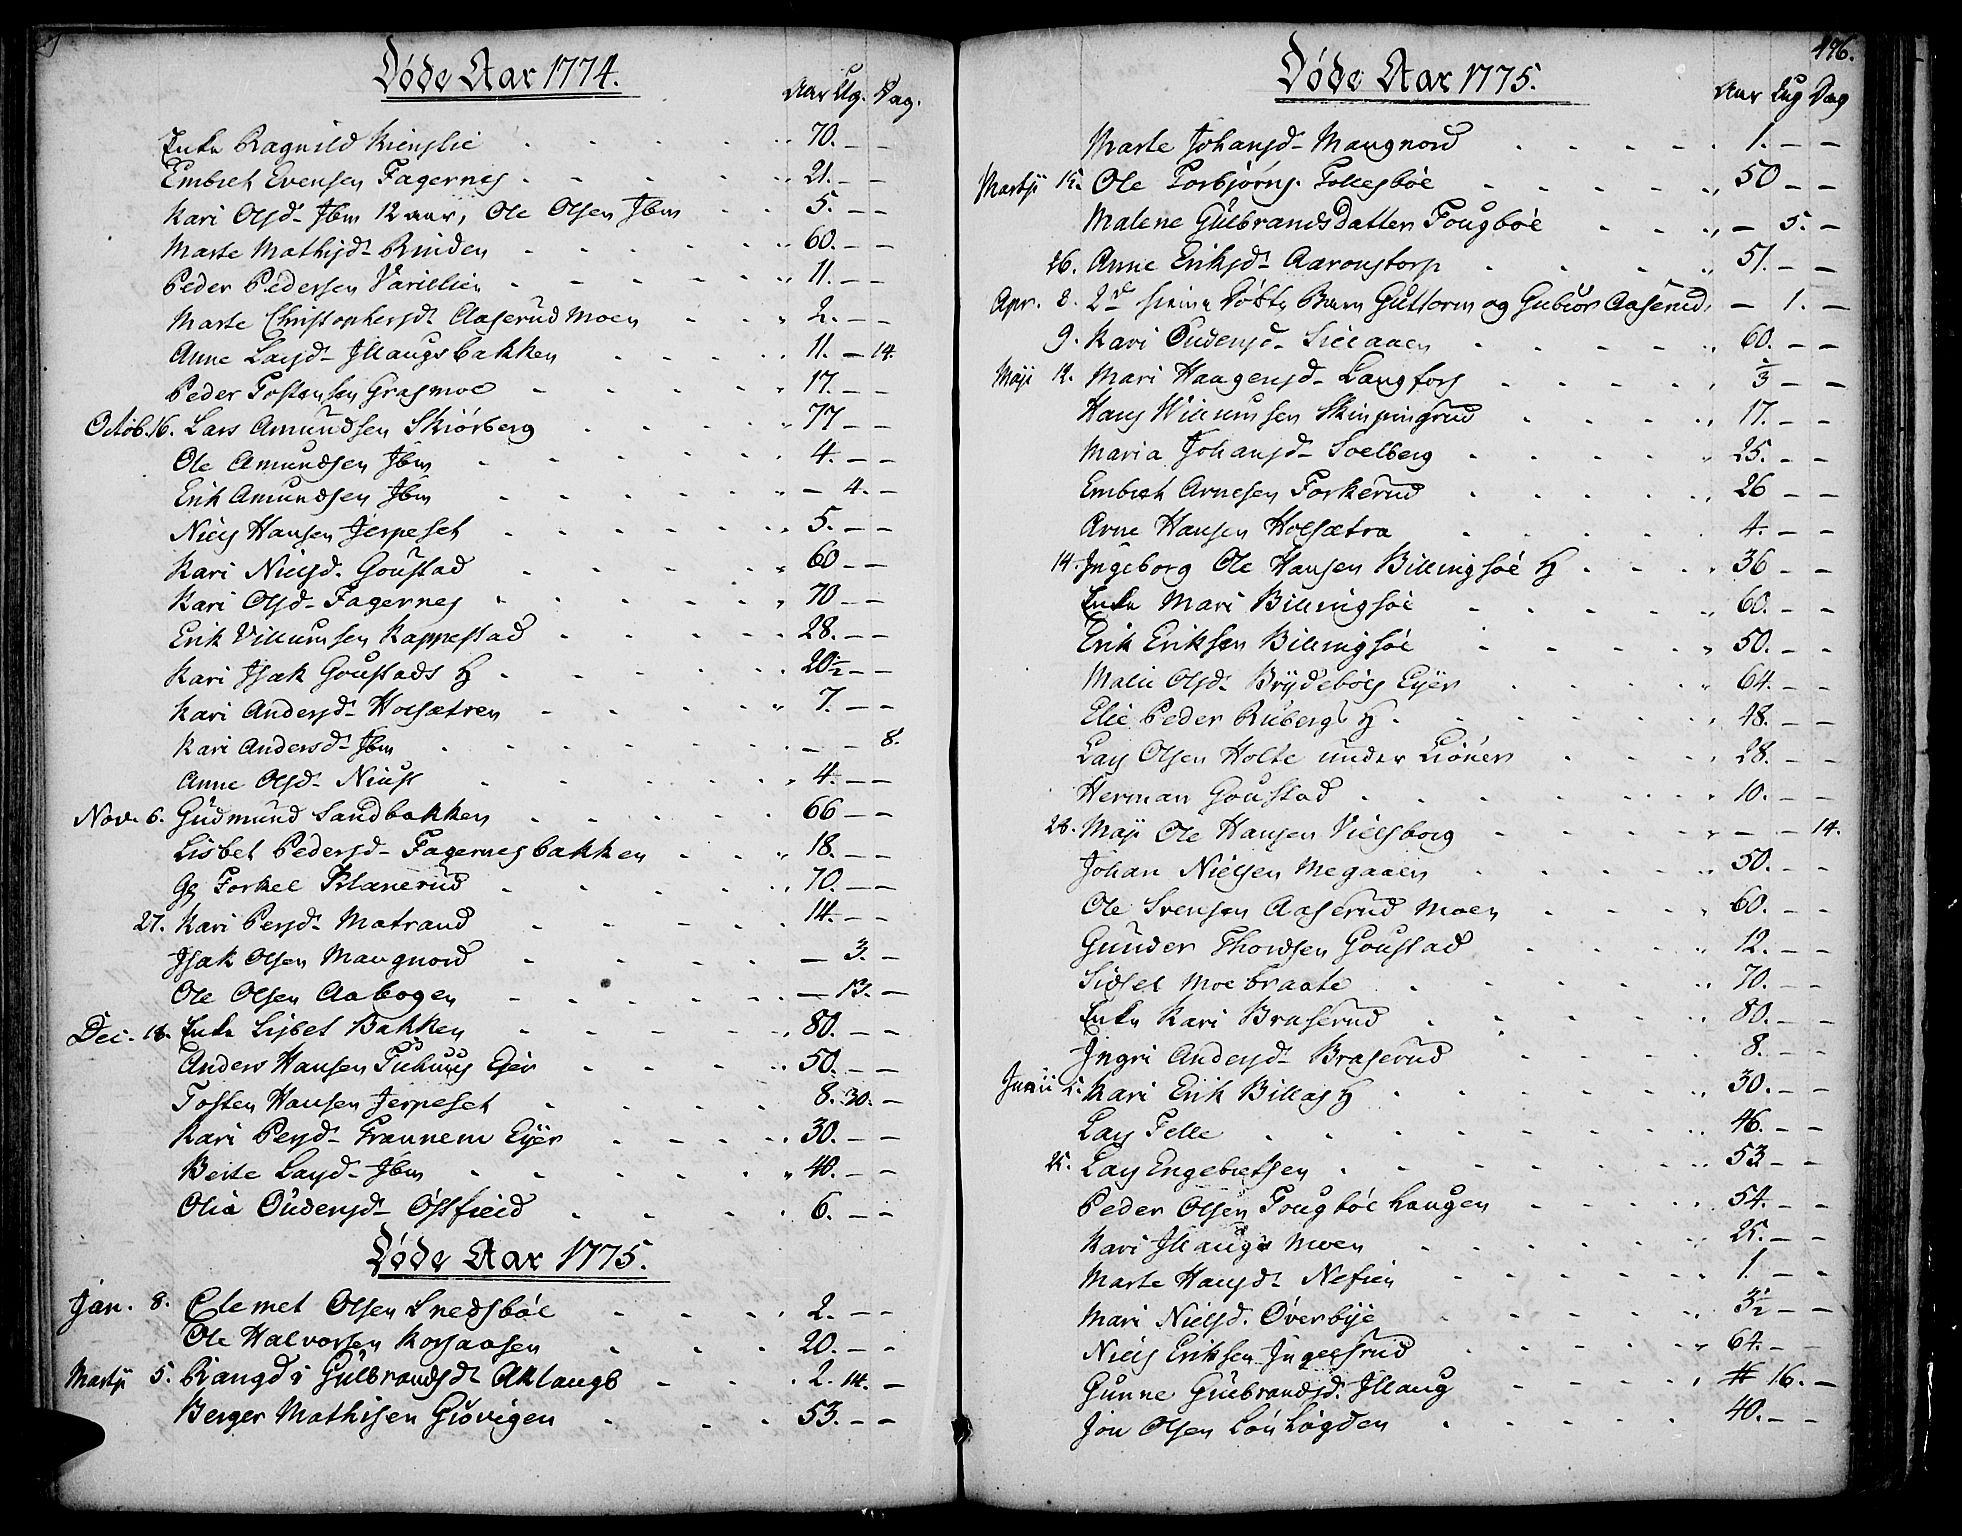 Døde Aar 1774.
Aar Ug. Dag.
Enke Ragnild Kienslie 70. – –
Embret Evensen Fagernes 21. – –
Kari Olsd. Jbm 12 aar, Ole Olsen Jbm 5. – –
Marte Mathisd. Rinden 60. – –
Peder Pedersen Varillien 11. – –
Marte Christophersd. Aaserud Moen 2. – –
Anne Larsd. Jllaugsbakken 11. – 14.
Peder Tostensen Grasmoe 17. – –
Octob. 16. Lars Amundsen Skiørberg 77 – –
Ole Amundsen Jbm 4. – –
Erik Amundsen Jbm – 4. –
Niels Hansen Jerpeset 5. – –
Kari Nielsd. Goustad 60 – –
Kari Olsd. Fagernes 70 – –
Erik Villumsen Kappestad 28. – –
Kari Jsak Goustads H 20½ – –
Kari Andersd. Holsætren 7. – –
Kari Andersd. Jbm – – 8.
Anne Olsd. Niust 4. – –
Nov. 6. Gudmund Sandbakken 66 – –
Lisbet Pedersd. Fagernesbakken 18. – –
Gg Torkel Klanerud 70. – –
27. Kari Persd. Matrand 14. – –
Jsak Olsen Maugnord – 3. –
Ole Olsen Aabogen – 13. –
Dec. 18. Enke Lisbet Bakken 80. – –
Anders Hansen Tuhuus Ejer 50. – –
Tosten Hansen Jerpeset 8. 30. –
Kari Persd. Frannem Eyer 30. – –
Berte Larsd. Jbm 40. – –
Olia Oudensd. Østfield 6. – –
Døde Aar 1775.
Jan. 8. Clemet Olsen Snedsbøl 2. – –
Ole Halvorsen Korsaasen 20. – –
Martji 5. Rangdi Gulbrandsd. Aklangb 2. 14. –
Berger Mathisen Giøvigen 53. – –
496.
Døde Aar 1775.
Aar Ug Dag
Marte Johansd. Maugnord 1. – –
Martji 12. Ole Torbjørns. Tollesbøl 50 – –
Malene Gulbrandsdatter Fougbøl – 5. –
26. Anne Eriksd. Aaronstorp 51. – –
Apr. 8. 2de hiemmedøbte Børn Guttorm og Gubiør Aaserud – 1. –
9. Kari Oudensd. Sillaaen 60. – –
Maji 12. Mari Haagensd. Langfors ⅓ – –
Hans Villumsen Skinpingrud 17. – –
Maria Johansd. Soelberg 25. – –
Embret Arnesen Torkerud 26 – –
Arne Hansen Holsætra 4. – –
14. Jngeborg Ole Hansen Billingsøe H 36 – –
Enke Mari Billingsøe 60. – –
Erik Eriksen Billingsøe 50. – –
Malii Olsd. Brydebøls Eyer 64. – –
Elie Peder Rubergs H 48. – –
Lars Olsen Holte under Liøner 28. – –
Herman Goustad 10. – –
28. Maji Ole Hansen Vielsborg – – 14.
Johan Nielsen Megaaen 50. – –
Ole Svensen Aaserud Moen 60. – –
Gunder Thordsen Goustad 12. – –
Sidsel Moebraate 70. – –
Enke Kari Braserud 80. – –
Jngri Andersd. Braserud 8. – –
Junii 5. Kari Erik Billas H 30. – –
Lars Telle 46. – –
25. Lars Engebretsen 53 – –
Peder Olsen Fougbøl Haugen 54. – –
Kari Jllaugs Moen 25. – –
Marte Hansd. Nefien 1. – –
Mari Nielsd. Overbye 3½ – –
Niels Eriksen Jngelsrud 64. – –
Gunne Gulbrandsd. Jllaug 16. –
Jon Olsen Løvhøgden 40. – –